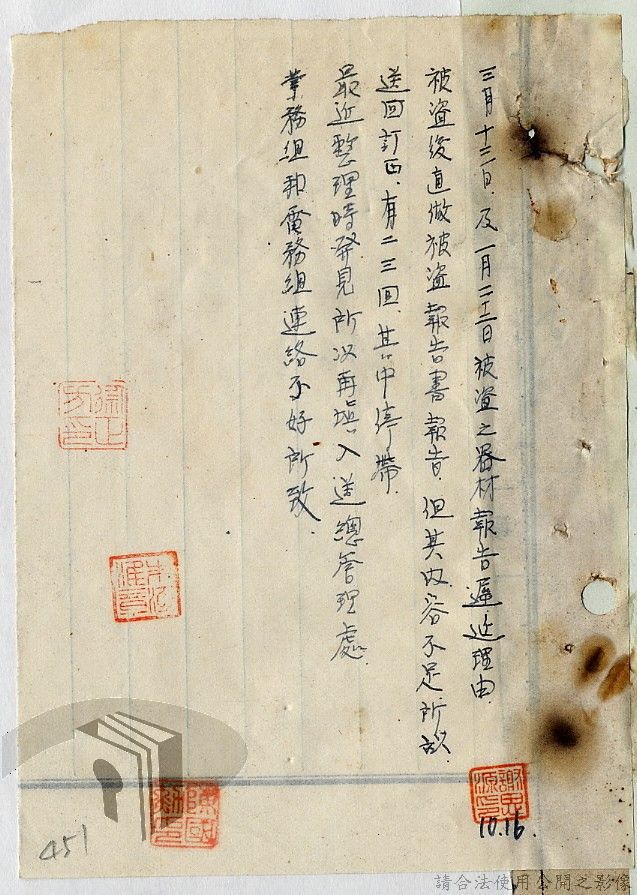 三月十三日,及一月二十二日被盜之器材報告遲延理由,
被盜後直做被盜報告書報告,但其內容不足,所以
送回訂正,有二三回,其中停帶,
最近整理時発見所以再填入送總管理處,
業務組和電務組連絡不好所致,
謝思源印
10.16.
陳國
451
請合法使用公開之影像